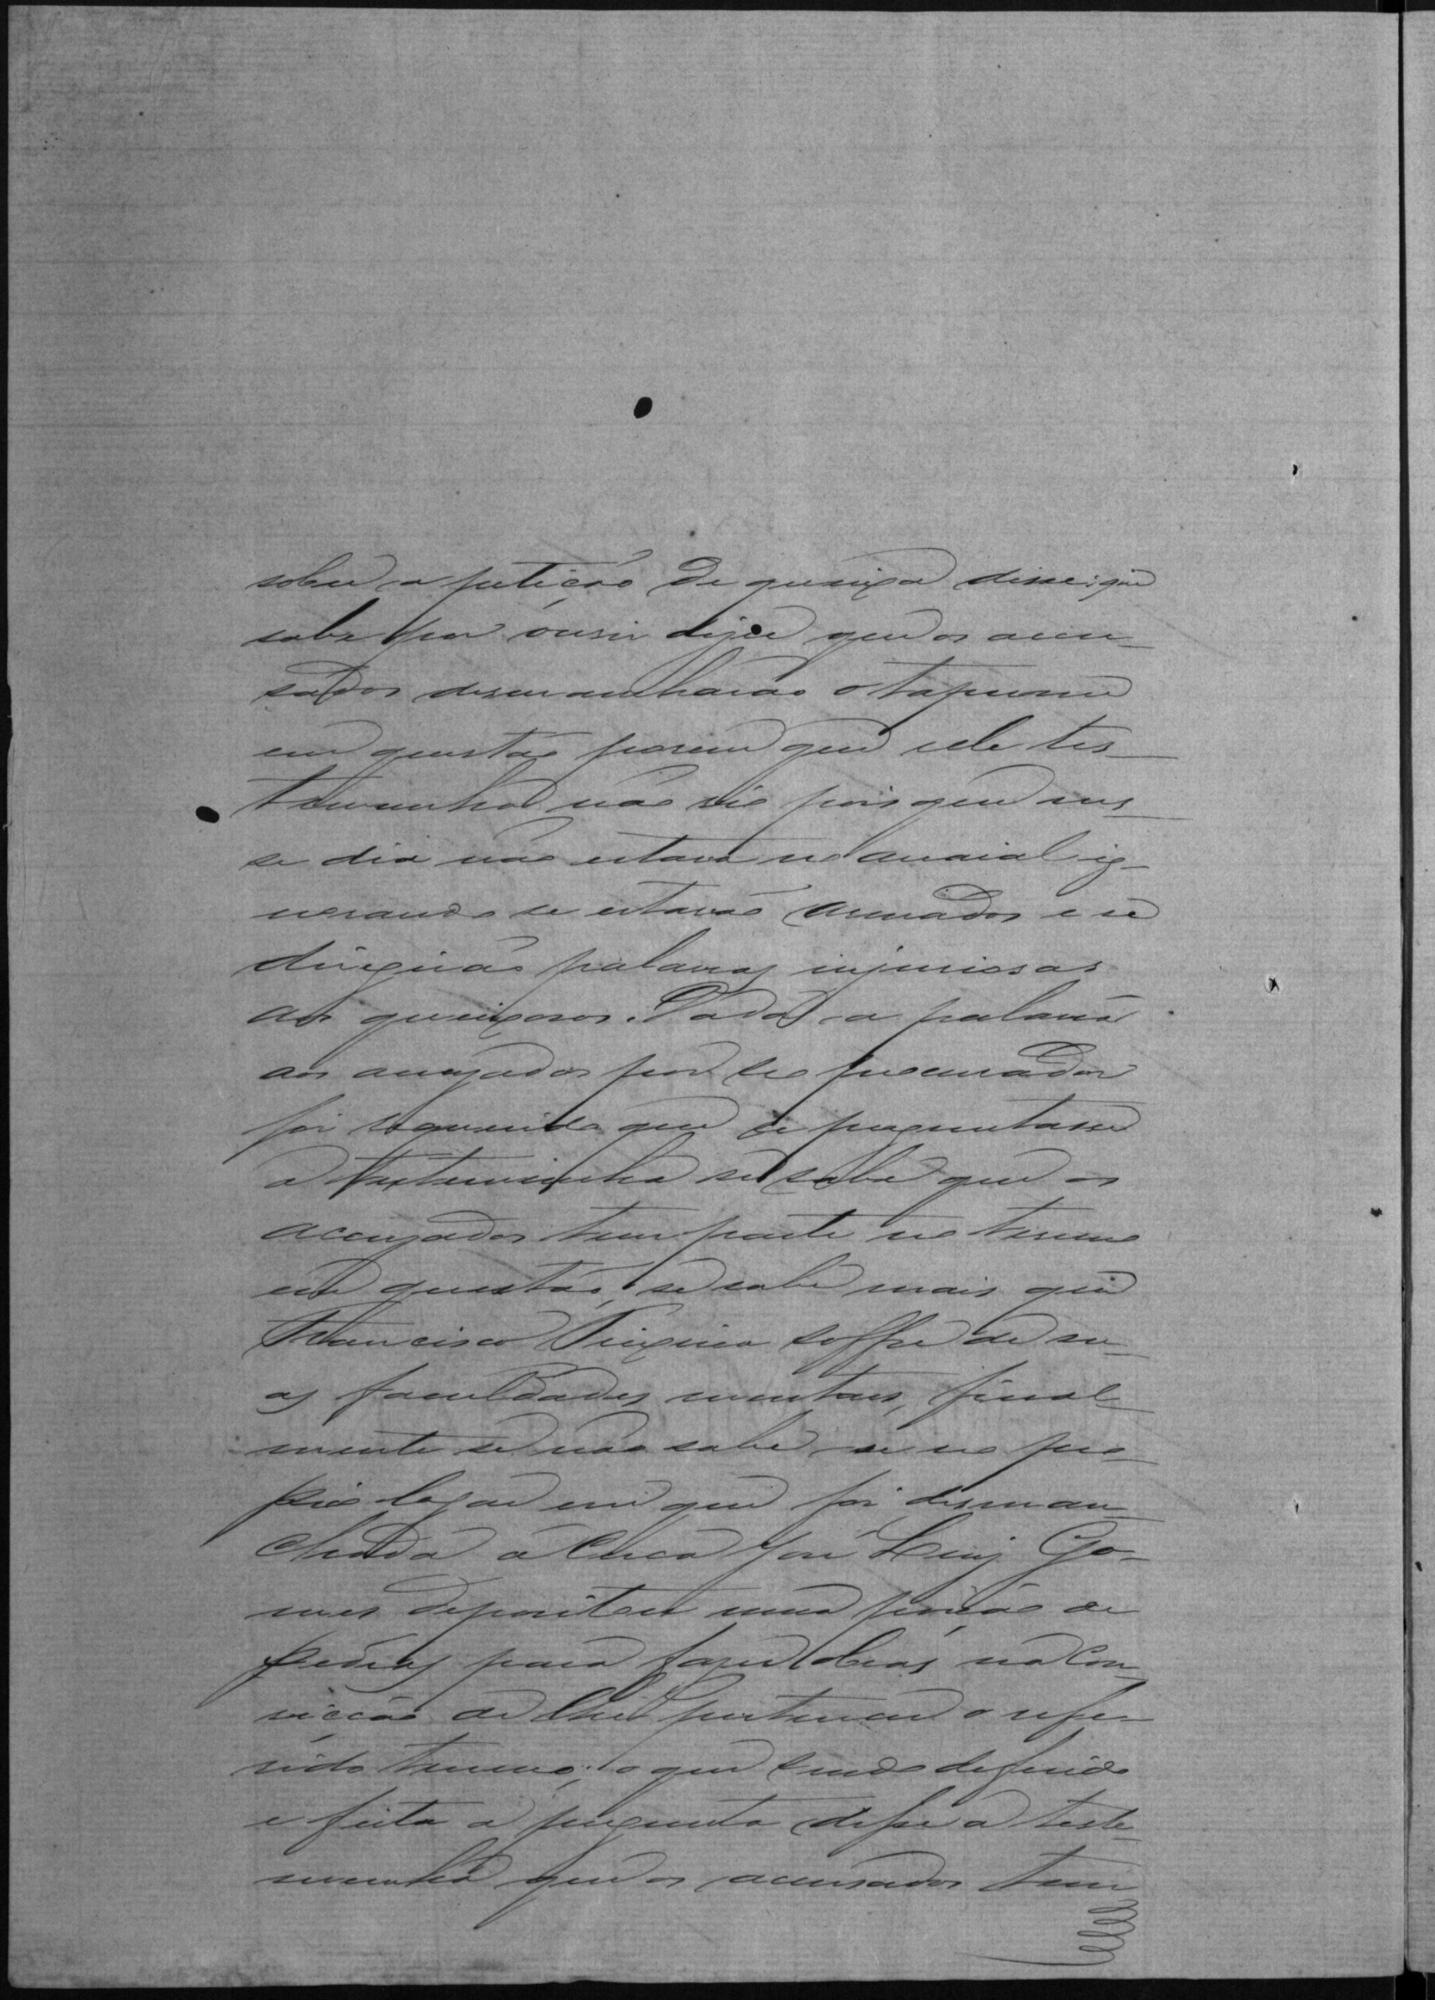 sobre a petição de queixa disse: que
sabe por ouvir dizer que os accu-
sados desmancharão o tapume
em questão porem que elle tes-
temunha não vio pois que nes-
se dia não estava no arraial ig-
norando se estavão armados e se
dirigirão palavras injuriosas
aos queixosos. Dada a palavra
aos accuzados por seo procurador
foi requerido que se perguntasse
a testemunha se sabe que os
accuzados tem parte no terreno
em questão, se sabe mais que
Francisco soffre de su-
as faculdades mentaes, final-
mente se não sabe se no pro-
prio logar em que foi desman-
chada a cerca José Luiz Go-
mes depositou uma porção de
pedras para fazer obras na con-
vicção de lhe pertencer o refe-
rido terreno; o que sendo deferido
e feita a pergunta disse a teste-
munha que os accusados tem